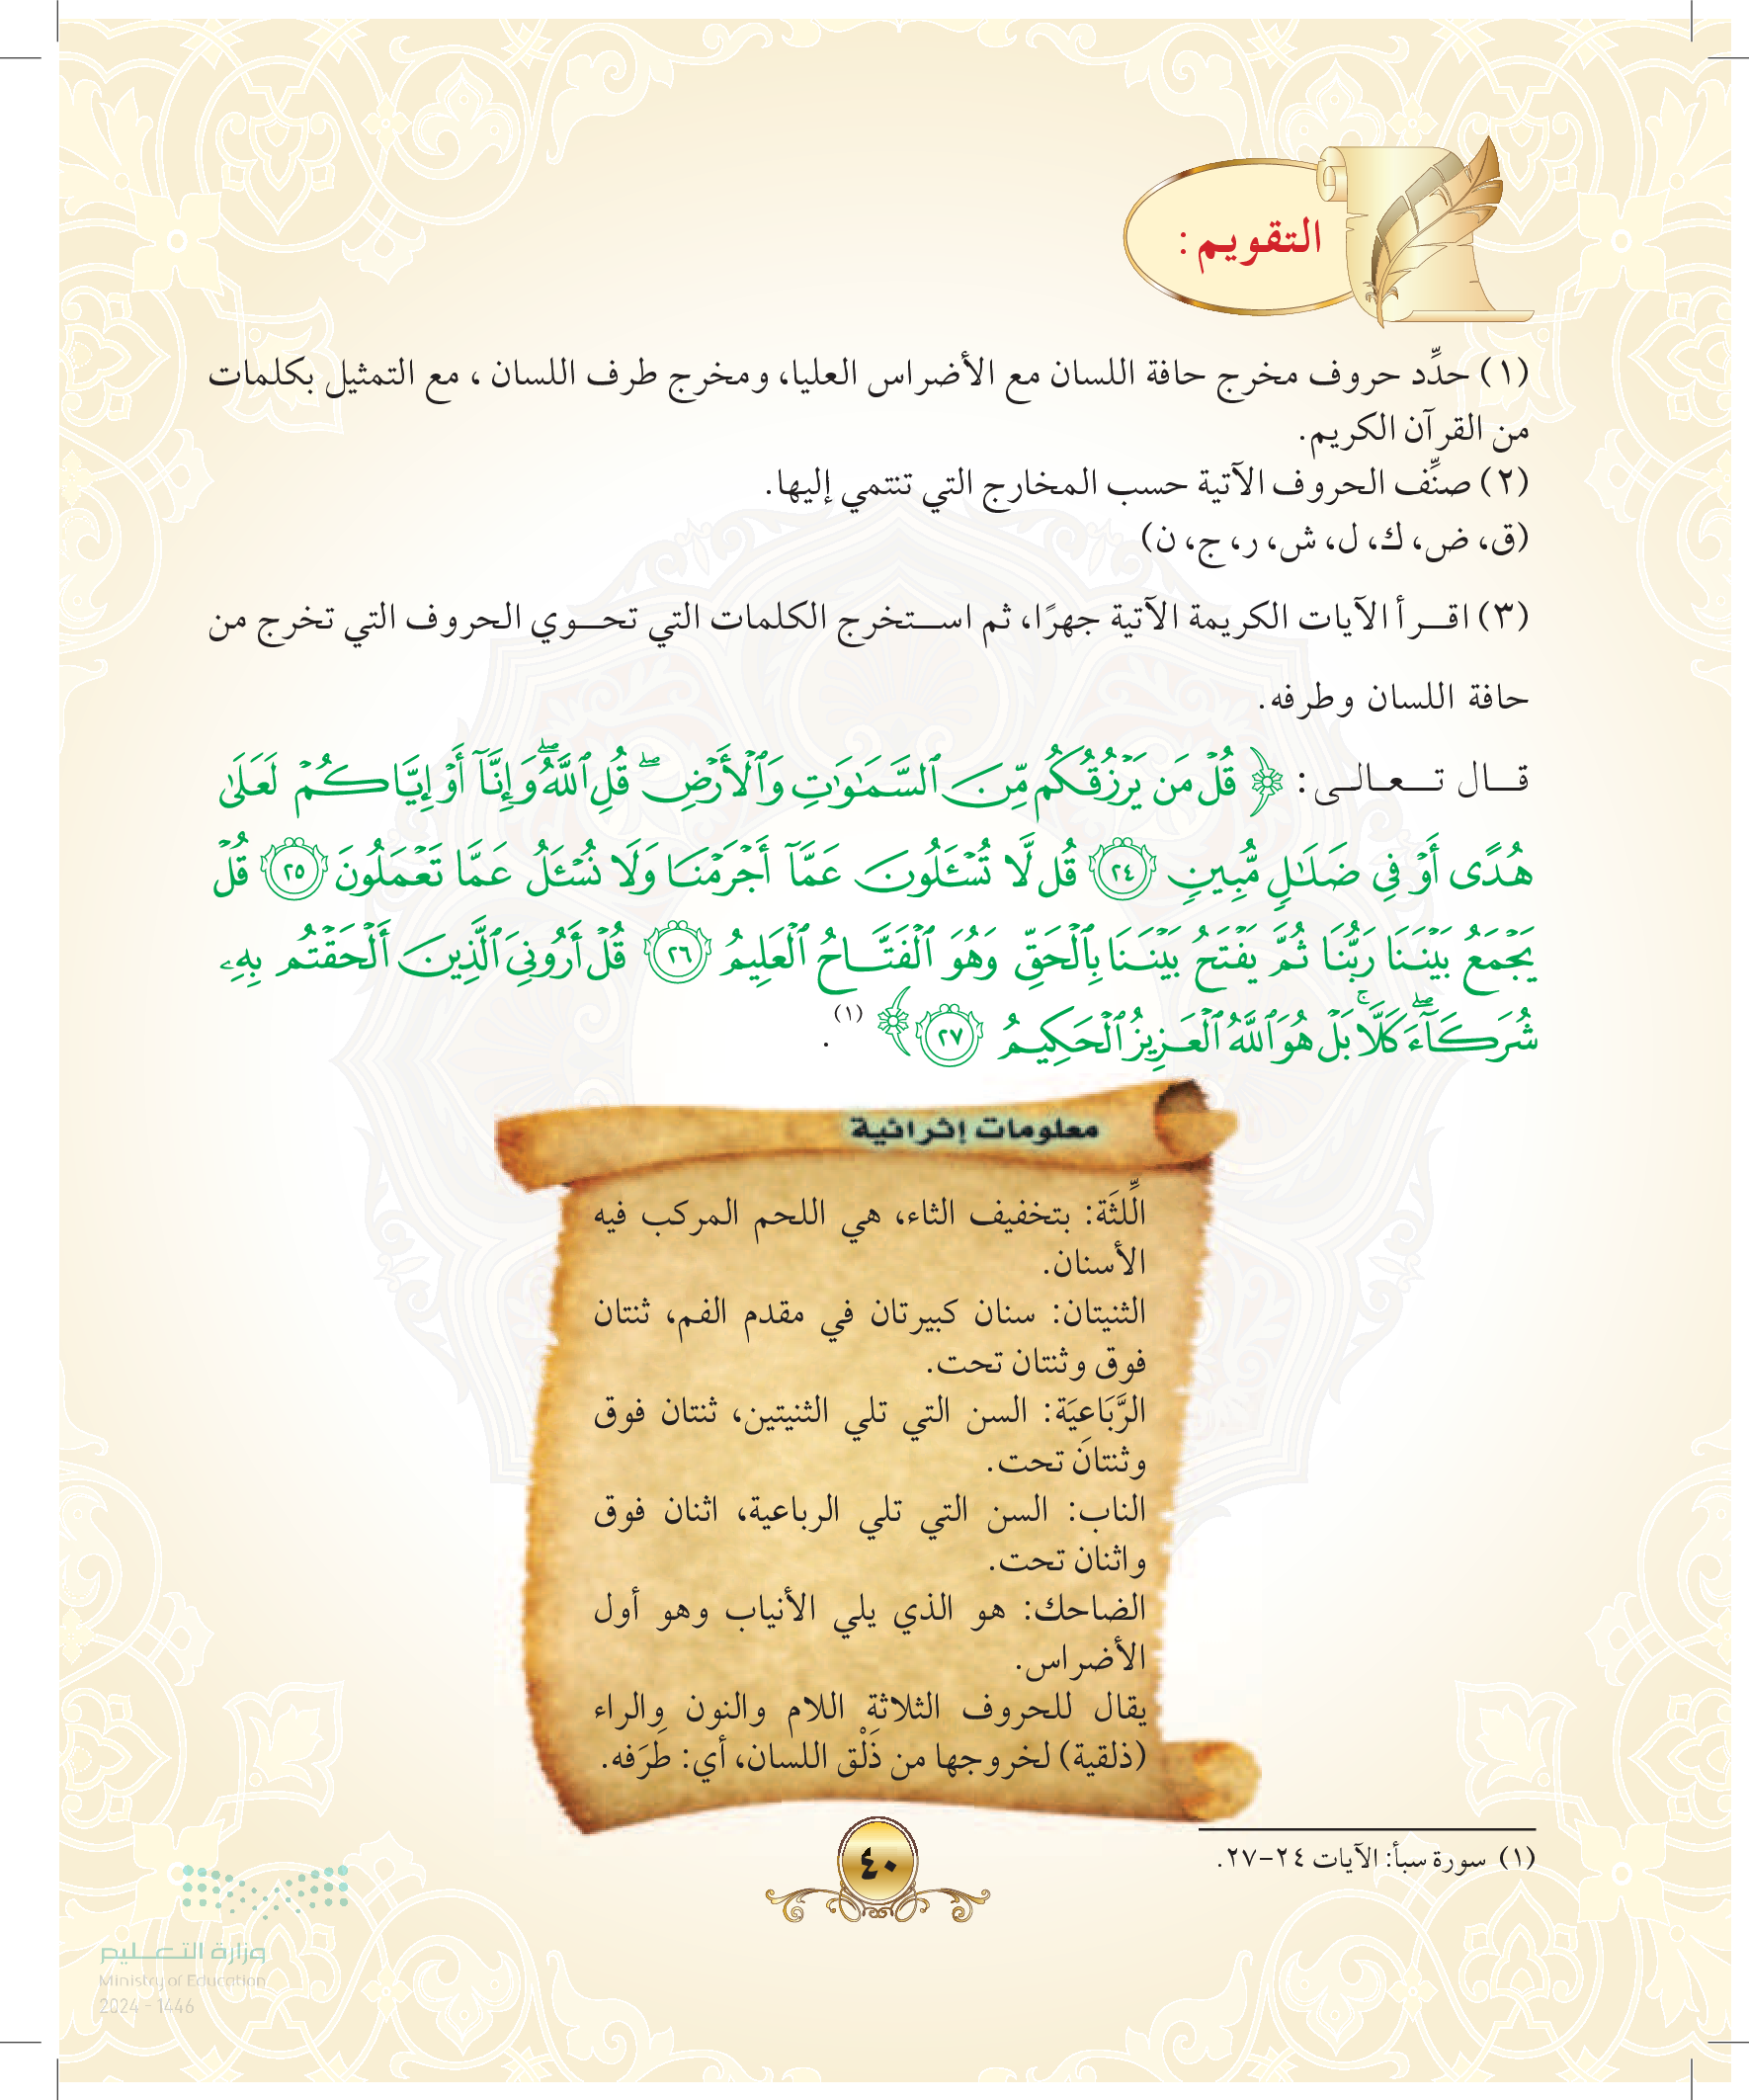 التقويم :
(١) حدِّد حروف مخرج حافة اللسان مع الأضراس العليا، ومخرج طرف اللسان ، مع التمثيل بكلمات
من القرآن الكريم.
(٢) صنِّف الحروف الآتية حسب المخارج التي تنتمي إليها.
(ق، ض، ك، ل، ش، ر، ج، ن)
(٣) اقــرأ الآيات الكريمة الآتية جهرًا، ثم اســتخرج الكلمات التي تحــوي الحروف التي تخرج من
حافة اللسان وطرفه.
قــال تــعــالــى: ﴿ قُلۡ مَن يَرۡزُقُكُم مِّنَ ٱلسَّمَٰوَٰتِ وَٱلۡأَرۡضِۖ قُلِ ٱللَّهُۖ وَإِنَّآ أَوۡ إِيَّاكُمۡ لَعَلَىٰ
هُدًى أَوۡ فِي ضَلَٰلٖ مُّبِينٖ ٢٤ قُل لَّا تُسۡـَٔلُونَ عَمَّآ أَجۡرَمۡنَا وَلَا نُسۡـَٔلُ عَمَّا تَعۡمَلُونَ ٢٥ قُلۡ
يَجۡمَعُ بَيۡنَنَا رَبُّنَا ثُمَّ يَفۡتَحُ بَيۡنَنَا بِٱلۡحَقِّ وَهُوَ ٱلۡفَتَّاحُ ٱلۡعَلِيمُ ٢٦ قُلۡ أَرُونِيَ ٱلَّذِينَ أَلۡحَقۡتُم بِهِۦ
شُرَكَآءَۖ كَلَّاۚ بَلۡ هُوَ ٱللَّهُ ٱلۡعَزِيزُ ٱلۡحَكِيمُ ٢٧ ﴾ (١) .
معلومات إثرائية
اللِّثَة: بتخفيف الثاء، هي اللحم المركب فيه
الأسنان.
الثنيتان: سنان كبيرتان في مقدم الفم، ثنتان
فوق وثنتان تحت.
الرَّبَاعِيَة: السن التي تلي الثنيتين، ثنتان فوق
وثنتان تحت.
الناب: السن التي تلي الرباعية، اثنان فوق
واثنان تحت.
الضاحك: هو الذي يلي الأنياب وهو أول
الأضراس.
يقال للحروف الثلاثة اللام والنون والراء
(ذلقية) لخروجها من ذَلْق اللسان، أي: طَرَفه.
(١) سورة سبأ: الآيات ٢٤-٢٧.
٤٠
وزارة التعـــليم
Ministry of Education
2024 - 1446